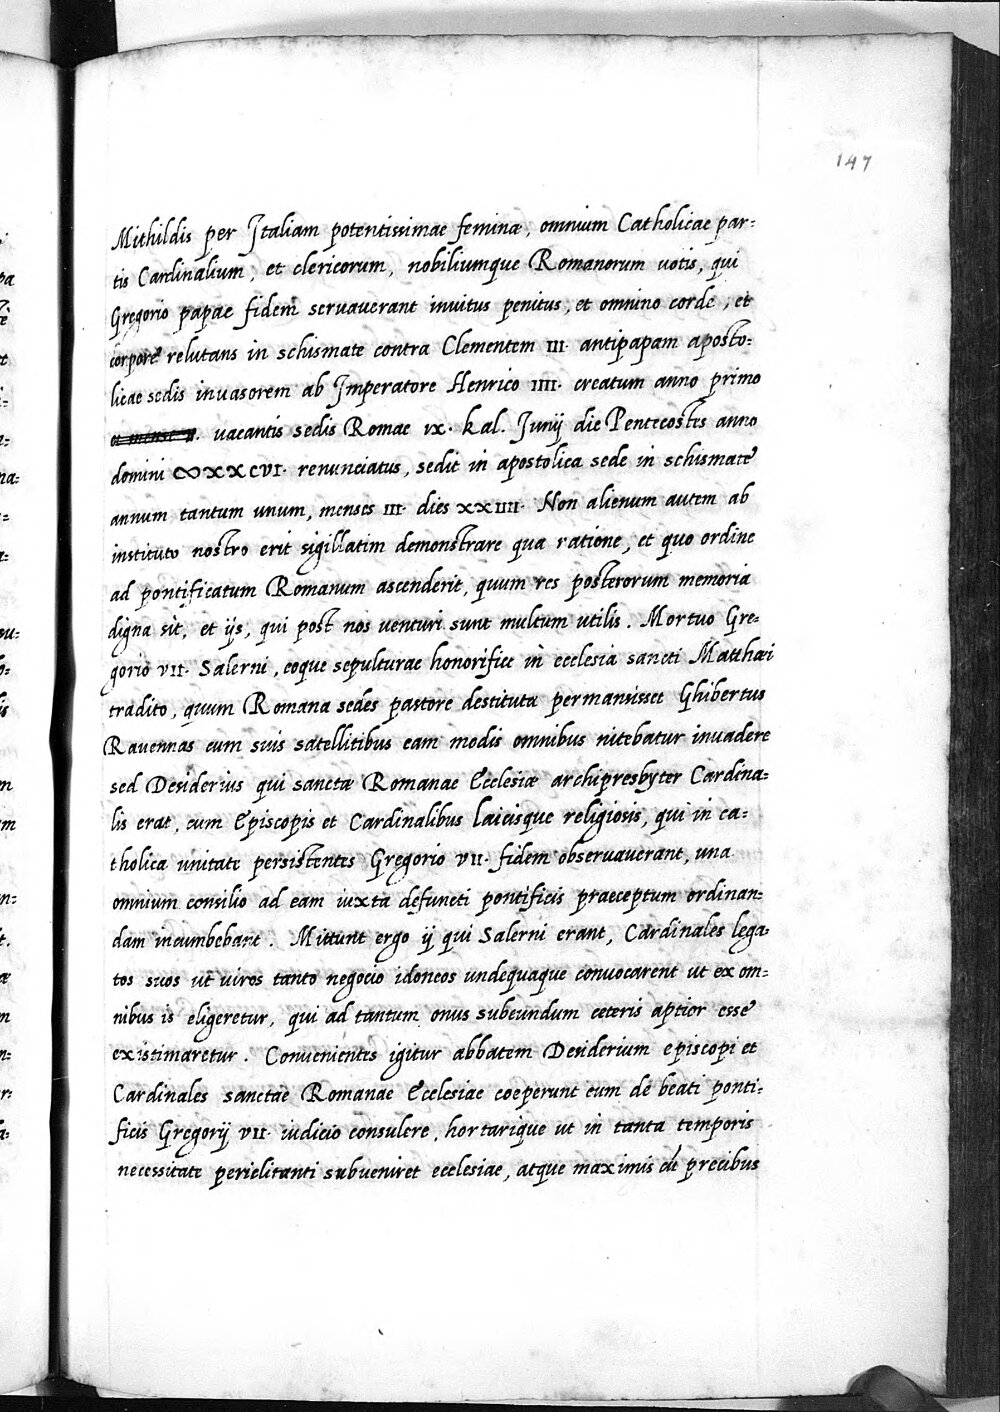 147
Mithildis per Italiam potentissimae feminæ, omnium Catholicae par=
tis Cardinalium, et clericorum, nobiliumque Romanorum uotis, qui
Gregorio papae fidem seruauerant inuitus penitus, et omnino corde, et
corpore relutans in schismate contra Clementem III. antipapam aposto=
licae sedis inuasorem ab Imperatore Henrico IIII. creatum anno primo
uacantis sedis Romae IX. kal. Junij die Pentecostes anno
domini ∞XXCVI. renunciatus, sedit in apostolica sede in schismate
annum tantum unum, menses III. dies XXIIII. Non alienum autem ab
instituto nostro erit sigillatim demonstrare qua ratione, et quo ordine
ad pontificatum Romanum ascenderit, quum res posterorum memoria
digna sit, et ijs, qui post nos venturi sunt multum utilis. Mortuo Gre=
gorio VII. Salerni, eoque sepulturae honorifice in ecclesia sancti Matthæi
tradito, quum Romana sedes pastore destituta permansisset Ghibertus
Rauennas cum suis satellitibus eam modis omnibus nitebatur inuadere
sed Desiderius qui sanctæ Romanae Ecclesiæ archipresbyter Cardina=
lis erat, cum Episcopis et Cardinalibus laicisque religiosis, qui in ca=
tholica unitate persistentes Gregorio VII. fidem obseruauerant, una
omnium consilio ad eam iuxta defuncti pontificis praeceptum ordinan=
dam incumbebant. Mittunt ergo ij qui Salerni erant, Cardinales lega=
tos suos ut uiros tanto negocio idoneos undequaque conuocarent ut ex om=
nibus is eligeretur, qui ad tantum onus subeundum ceteris aptior esse
existimaretur. Conuenientes igitur abbatem Desiderium episcopi et
Cardinales sanctae Romanae Ecclesiae coeperunt eum de beati ponti=
ficis Gregorij VII. iudicio consulere, hortarique ut in tanta temporis
necessitate periclitanti subueniret ecclesiae, atque maximis precibus